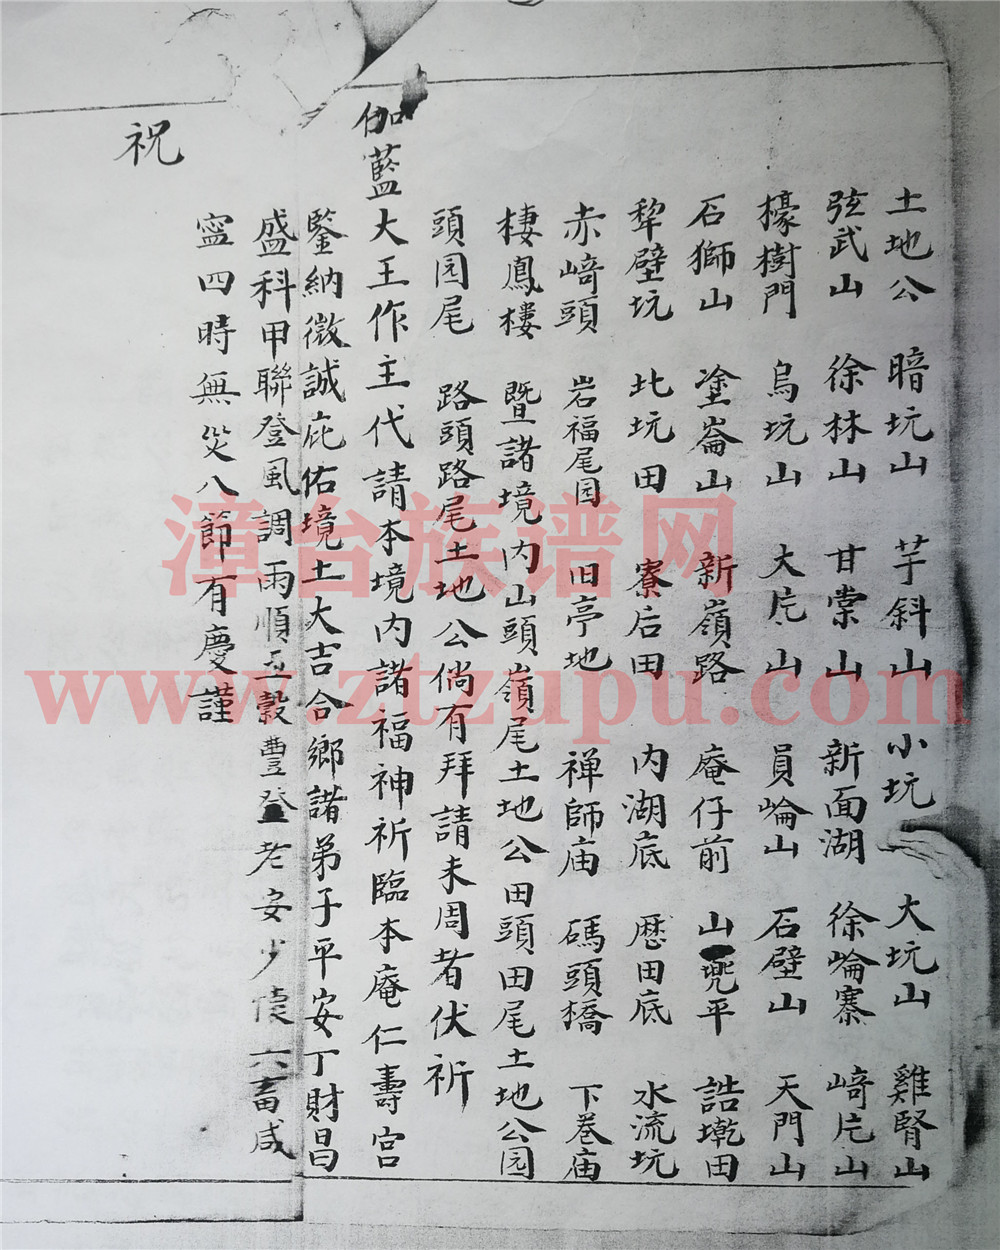 土地公 暗坑山 芋斜山 小坑 大坑山 雞腎山
弦武山 徐林山 甘棠山 新面湖 徐崙寨 崎片山
檺樹門 烏坑山 大片山 員崙山 石壁山 天門山
石獅山 塗崙山 新嶺路 庵仔前 山兜平 誥墘田
犂壁坑 北坑田 寮后田 內湖底 厝田底 水流坑
赤崎頭 岩福尾园 旧亭地 禅師庙 碼頭橋 下巷庙
棲鳳樓 暨諸境內山頭嶺尾土地公田頭田尾土地公园
頭园尾 路頭路尾土地公倘有拜請未周者伏祈
伽藍大王作主代請本境內諸福神祈臨本庵仁壽宮
鑒納微誠庇佑境土大吉合鄉諸弟子平安丁財昌
盛科甲聯登風調雨順五穀豊登老安少懷六畜咸
寧四時無災八節有慶謹
祝
漳台族谱网
www.ztzupu.com